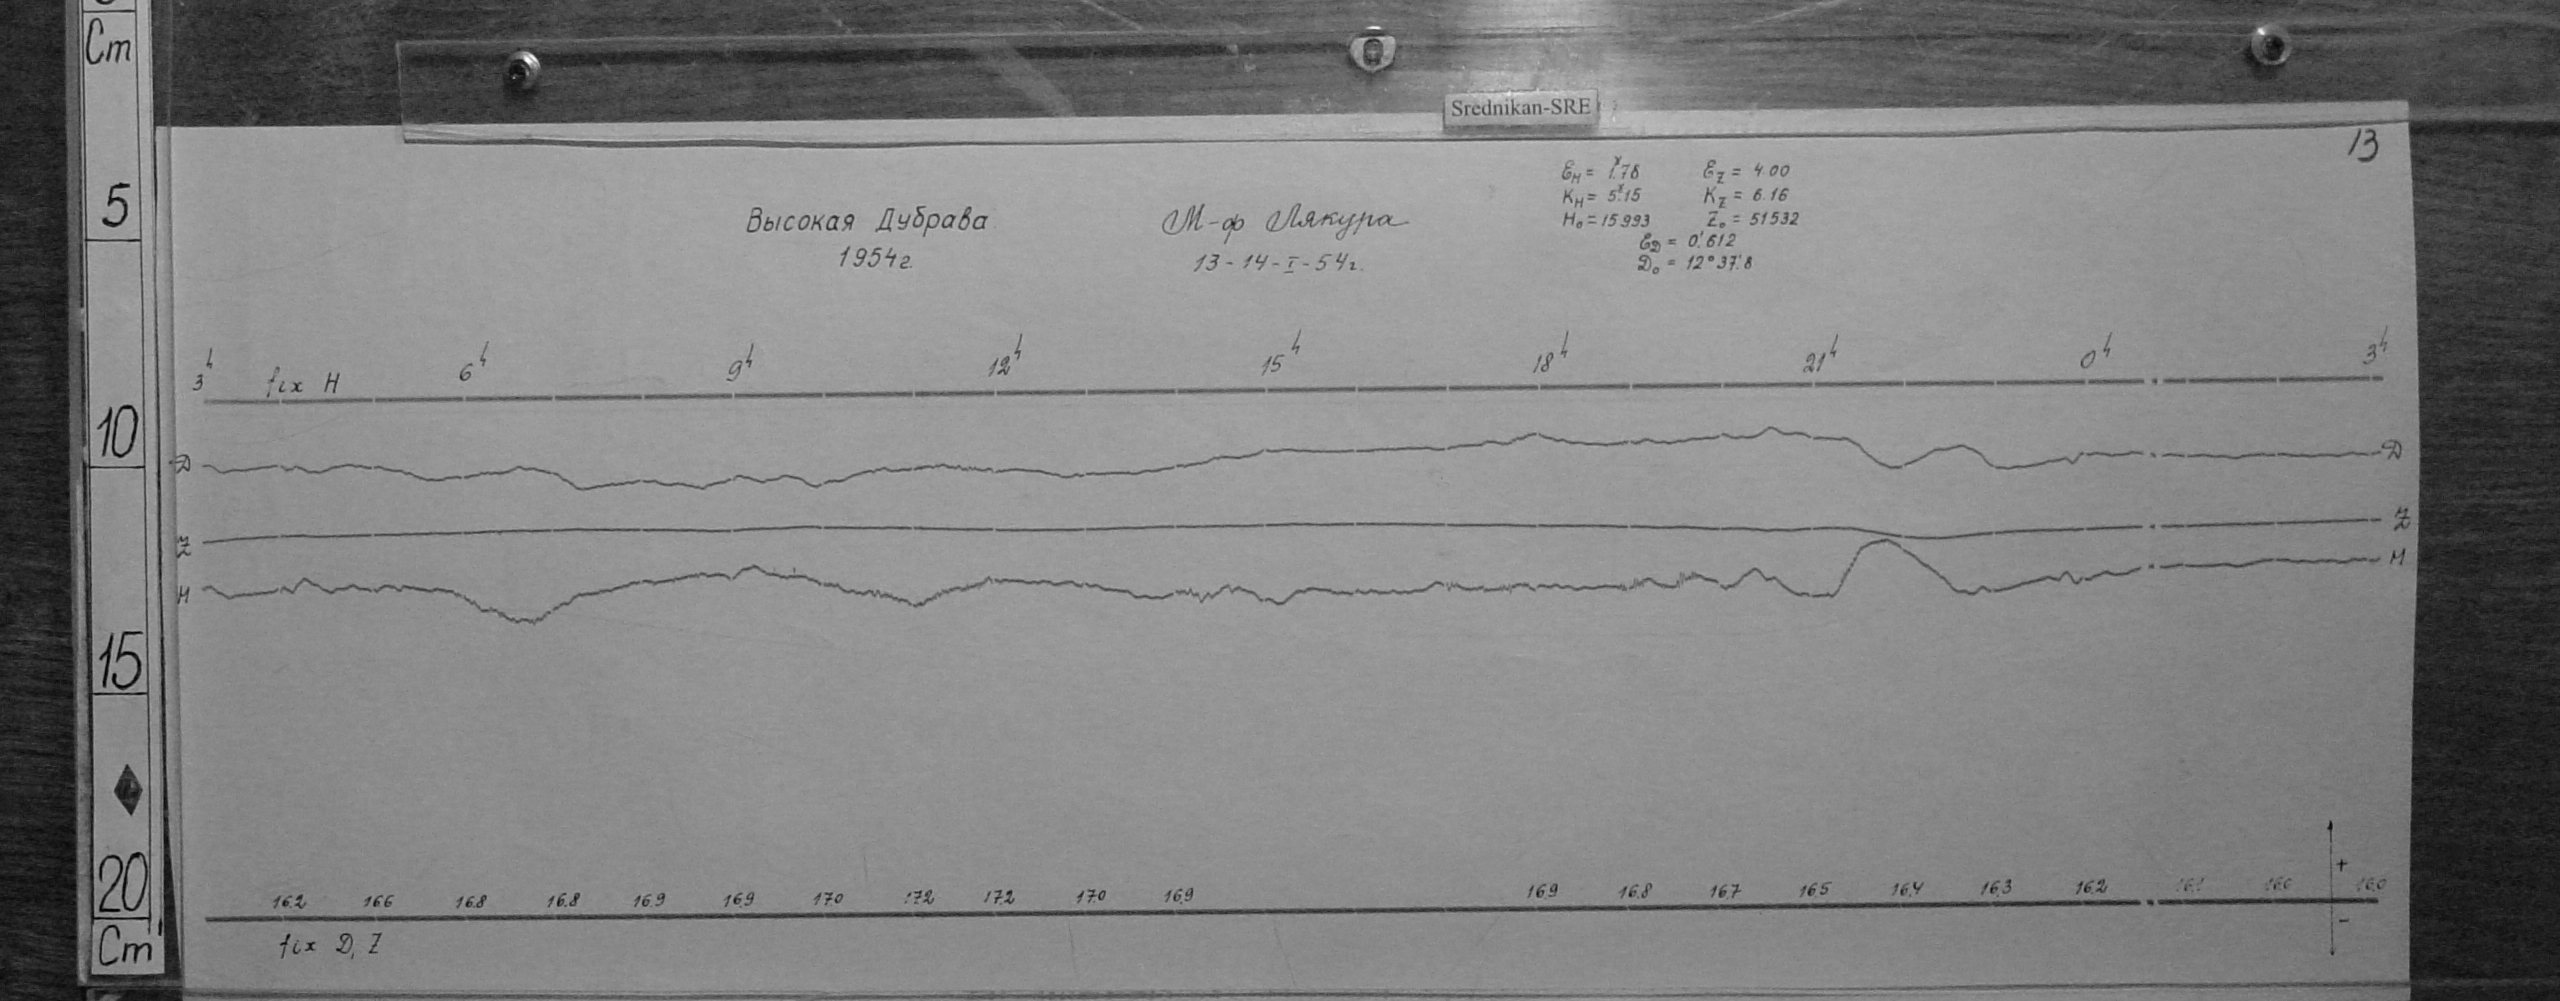 Cm
Srednikan-SRE
13
Ɛн = 1.78 Ɛz = 4.00
Kн = 5.15 Kz = 6.16
H₀ = 15993 Z₀ = 51532
ƐD = 0'.612
D₀ = 12° 37'.8
Высокая Дубрава
1954г.
М-ф Лякура
13-14-I-54г.
5
3h fix H 6h 9h 12h 15h 18h 21h 0h 3h
10
D D
Z Z
H H
15
+
20
16.2 16.6 16.8 16.8 16.9 16.9 17.0 17.2 17.2 17.0 16.9 16.9 16.8 16.7 16.5 16.4 16.3 16.2 16.1 16.0 16.0
-
Cm
fix D, Z